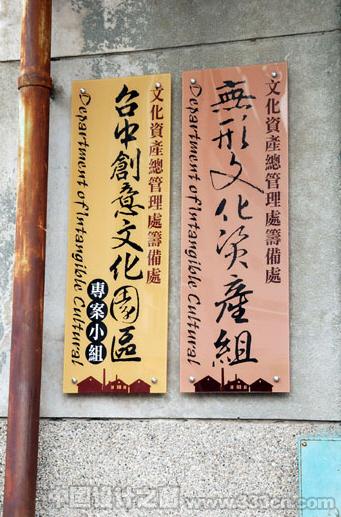 文化資產總管理處籌備處
無形文化資產組
Department of Intangible Cultural
文化資產總管理處籌備處
台中創意文化園區
專案小組
Department of Intangible Cultural
中国设计之窗
www.333cn.com